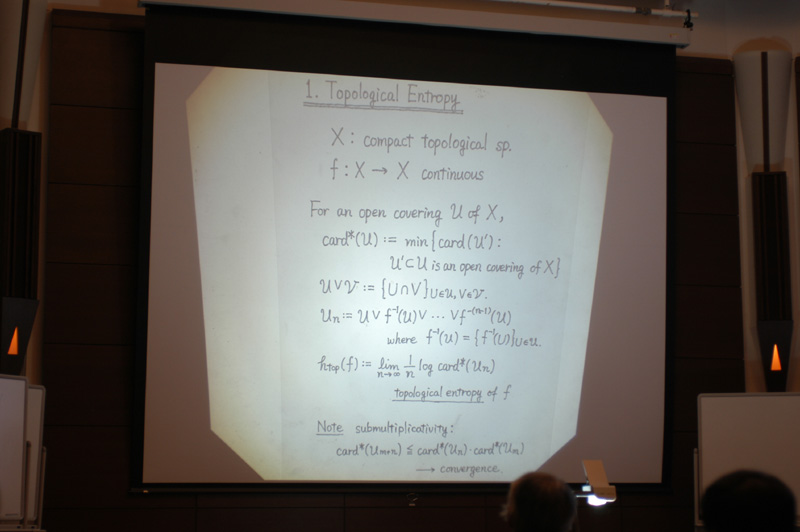 1. Topological Entropy
X : compact topological sp.
f : X → X continuous
For an open covering 𝒰 of X,
card*(𝒰) := min{card(𝒰′) :
𝒰′⊂𝒰 is an open covering of X}
𝒰∨𝒱 := {U∩V}U∈𝒰, V∈𝒱.
𝒰n := 𝒰∨f⁻¹(𝒰)∨ ⋯ ∨f⁻⁽ⁿ⁻¹⁾(𝒰)
where f⁻¹(𝒰) = {f⁻¹(U)}U∈𝒰.
htop(f) := lim n→∞ 1/n log card*(𝒰n)
topological entropy of f
Note submultiplicativity:
card*(𝒰m+n) ≦ card*(𝒰n)·card*(𝒰m)
→ convergence.